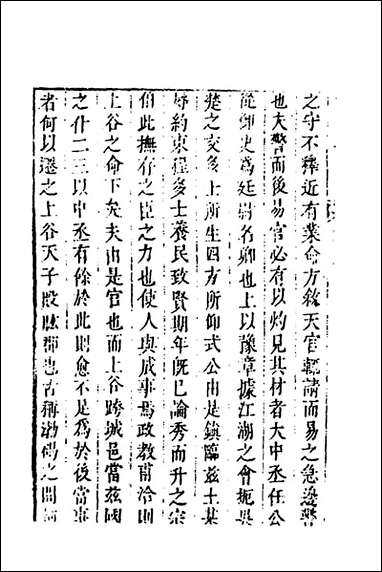 之守不釋近有業命方敘天官輒請而易之急邊警
也夫警而後易官必有以灼見其材者大中丞任公
從御史爲廷尉名卿也上以豫章據江湖之會扼吳
楚之交多上所生四方所仰式公由是鎮臨茲土某
辱約束程多士養民致賢期年旣已論秀而升之宗
伯此撫存之臣之力也使人與成事焉政教甫洽則
上谷之命下矣夫由是官也而上谷跨城邑當茲國
之什二三以中丞有餘於此則愈不足爲於後當事
者何以遷之上谷天子股肱郡也古稱渤碣之間